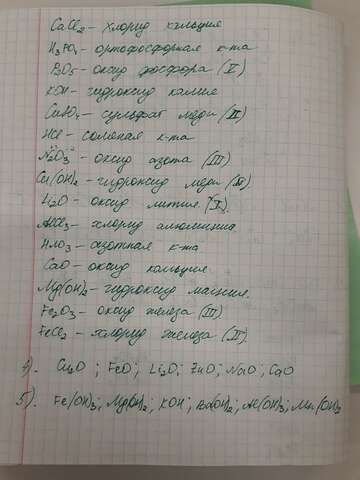 CaCl2 - хлорид кальция
H3PO4 - ортофосфорная к-та
P2O5 - оксид фосфора (V)
KOH - гидроксид калия
CuSO4 - сульфат меди (II)
HCl - соляная к-та
N2O3 - оксид азота (III)
Cu(OH)2 - гидроксид меди (II)
Li2O - оксид лития (I).
AlCl3 - хлорид алюминия
HNO3 - азотная к-та
CaO - оксид кальция.
Mg(OH)2 - гидроксид магния.
Fe2O3 - оксид железа (III)
FeCl2 - хлорид железа (II).
4). ; FeO; Li2O; ZnO; ; CaO
5). Fe(OH)3; Mg(OH)2; KOH; Ba(OH)2; Al(OH)3; Mn(OH)2